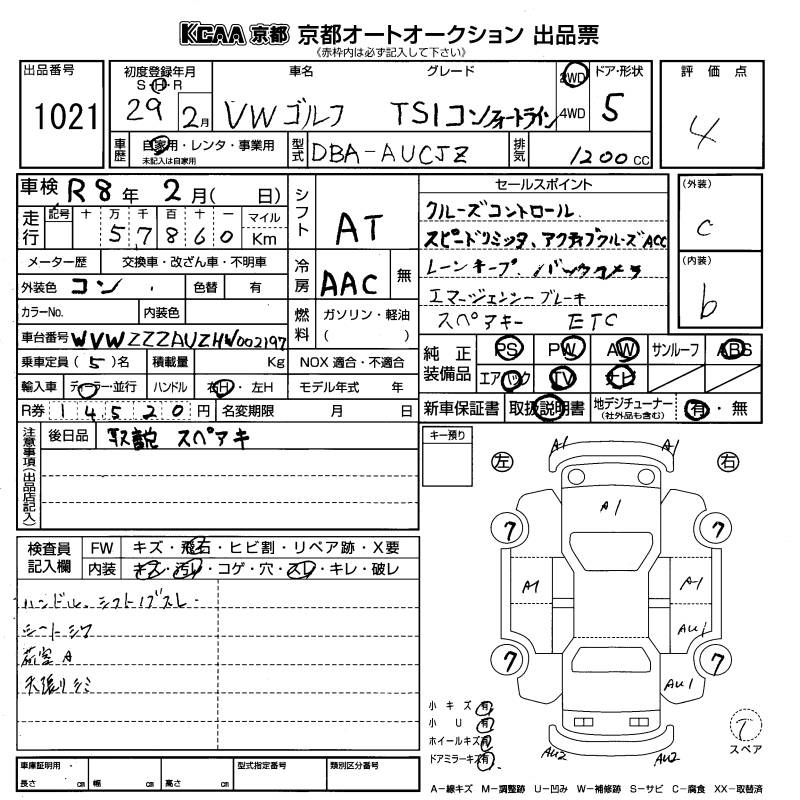 KCAA 京都 京都オートオークション 出品票
《赤枠内は必ず記入して下さい》
出品番号
1021
初度登録年月 車名 グレード ドア・形状
S・H・R 2WD
29 2月 VW ゴルフ TSI コンフォートライン 4WD 5
車歴 自家用・レンタ・事業用
未記入は自家用
型式 DBA-AUCJZ 排気 1200 CC
評価点
4
車検 R8年 2月( 日)
走行 記号 十 万 千 百 十 一 マイル
5 7 8 6 0 Km
シフト AT
メーター歴 交換車・改ざん車・不明車
外装色 コン 色替 有
冷房 AAC 無
カラーNo. 内装色
燃料 ガソリン・軽油
( )
車台番号 WVWZZZAUZHW002197
乗車定員 (5)名 積載量 Kg NOX 適合・不適合
輸入車 ディーラー・並行 ハンドル 右H・左H モデル年式 年
R券 14520円 名変期限 月 日
セールスポイント
クルーズコントロール
スピードリミッタ、アクティブクルーズACC
レーンキープ、バックカメラ
エマージェンシーブレーキ
スペアキー ETC
(外装)
C
(内装)
b
純正装備品 PS PW AW サンルーフ ABS
エアバック TV ナビ
新車保証書 取扱説明書 地デジチューナー
(社外品も含む)
有・無
注意事項(出品店記入)
後日品 取説 スペアキ
キー預り
左 右
A1 A1
A1
7 7
A1 A1
AU1
7 7
AU1
AU2 AU2
検査員記入欄
FW キズ・飛石・ヒビ割・リペア跡・X要
内装 キズ・汚レ・コゲ・穴・スレ・キレ・破レ
ハンドル、シフトノブスレ
シートシワ
荷室A
天張リシミ
小キズ 有
小U 有
ホイールキズ 有
ドアミラーキズ 有
スペア
車庫証明用・
長さ cm 幅 cm 高さ cm
型式指定番号 類別区分番号
A-線キズ M-調整跡 U-凹み W-補修跡 S-サビ C-腐食 XX-取替済